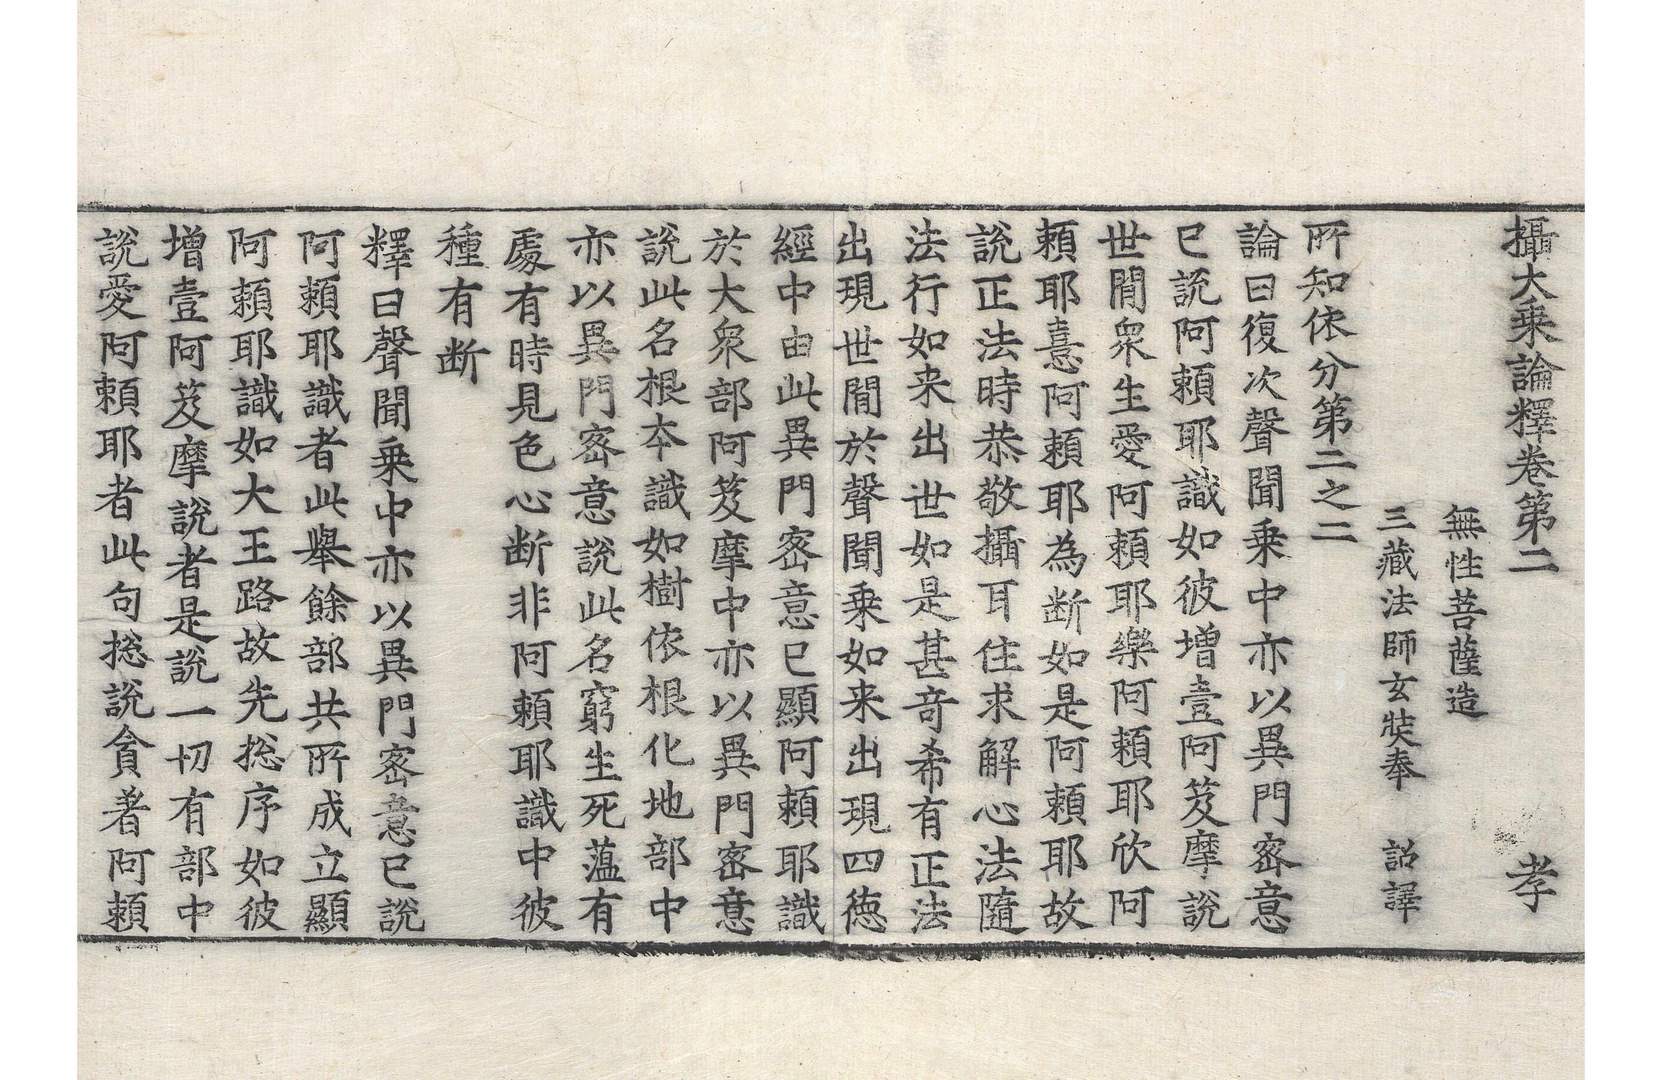 攝大乘論釋卷第二 孝
無性菩薩造
三藏法師玄奘奉 詔譯
所知依分第二之二
論曰復次聲聞乘中亦以異門密意
已說阿賴耶識如彼增壹阿笈摩說
世間衆生愛阿賴耶樂阿賴耶欣阿
賴耶憙阿賴耶為断如是阿賴耶故
說正法時恭敬攝耳住求解心法隨
法行如来出世如是甚竒希有正法
出現世間於聲聞乘如来出現四德
經中由此異門密意已顯阿賴耶識
於大衆部阿笈摩中亦以異門密意
說此名根本識如樹依根化地部中
亦以異門密意說此名窮生死蕰有
處有時見色心断非阿賴耶識中彼
種有断
釋曰聲聞乘中亦以異門密意已說
阿賴耶識者此舉餘部共所成立顯
阿賴耶識如大王路故先揔序如彼
增壹阿笈摩說者是說一切有部中
說愛阿賴耶者此句揔說貪著阿賴